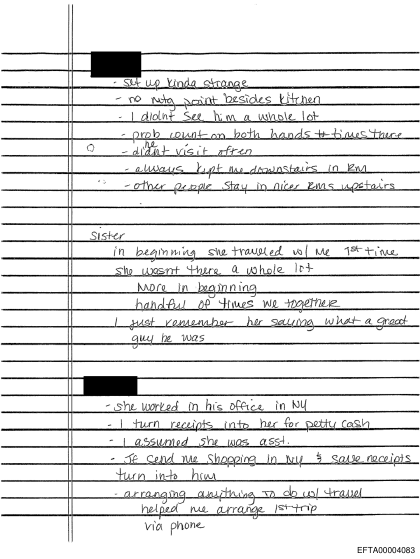 - set up kinda strange
- no mtg point besides kitchen
- I didnt see him a whole lot
- prob count on both hands # times there
- he didnt visit often
- always kept me downstairs in rm
- other people stay in nicer rms upstairs
sister
in beginning she traveled w/ me 1st time
she wasnt there a whole lot
more in beginning
handful of times we together
I just remember her saying what a great
guy he was
- she worked in his office in NY
- I turn receipts into her for petty cash
- I assumed she was asst.
- JE send me shopping in NY & save receipts
turn into him
- arranging anything to do w/ travel
helped me arrange 1st trip
via phone
EFTA00004083